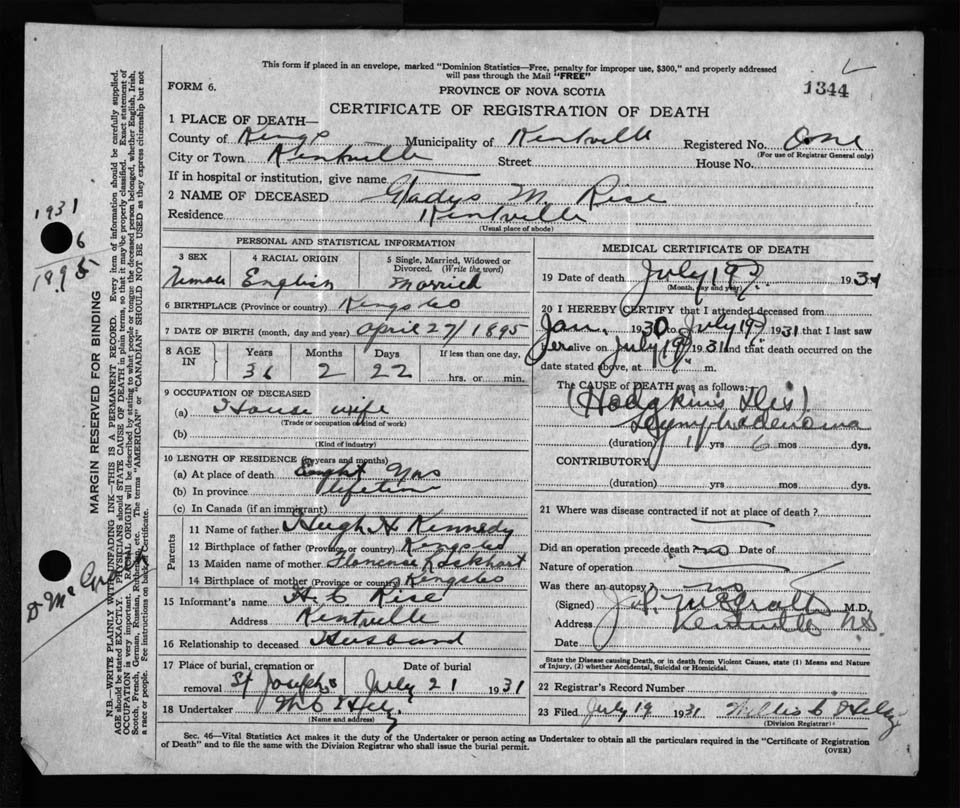 This form if placed in an envelope, marked "Dominion Statistics—Free, penalty for improper use, $300," and properly addressed
will pass through the Mail "FREE"
FORM 6.
PROVINCE OF NOVA SCOTIA
1344
CERTIFICATE OF REGISTRATION OF DEATH
1 PLACE OF DEATH—
County of Kings Municipality of Kentville Registered No. One
(For use of Registrar General only)
City or Town Kentville Street House No.
If in hospital or institution, give name
2 NAME OF DECEASED Gladys M. Rise
Residence Kentville
(Usual place of abode)
PERSONAL AND STATISTICAL INFORMATION
3 SEX 4 RACIAL ORIGIN 5 Single, Married, Widowed or
Divorced. (Write the word)
Female English Married
6 BIRTHPLACE (Province or country) Kings Co
7 DATE OF BIRTH (month, day and year) April 27/1895
8 AGE IN Years Months Days If less than one day,
36 2 22 hrs. or min.
9 OCCUPATION OF DECEASED
(a) House wife
(Trade or occupation or kind of work)
(b)
(Kind of industry)
10 LENGTH OF RESIDENCE (in years and months)
(a) At place of death Eight yrs
(b) In province lifetime
(c) In Canada (if an immigrant)
Parents
11 Name of father Hugh H Kennedy
12 Birthplace of father (Province or country) Kings Co
13 Maiden name of mother Florence Lockhart
14 Birthplace of mother (Province or country) Kings Co
15 Informant's name H. C. Rise
Address Kentville
16 Relationship to deceased Husband
17 Place of burial, cremation or Date of burial
removal St Josephs July 21 1931
18 Undertaker
(Name and address)
MEDICAL CERTIFICATE OF DEATH
19 Date of death July 19 1931
(Month, day and year)
20 I HEREBY CERTIFY that I attended deceased from
Jan. 1930 to July 19 1931 that I last saw
her alive on July 19 1931 and that death occurred on the
date stated above, at m.
The CAUSE of DEATH was as follows:
(Hodgkin's Dis)
Lymphadenoma
(duration) 1 yrs 6 mos dys.
CONTRIBUTORY
(duration) yrs mos dys.
21 Where was disease contracted if not at place of death?
Did an operation precede death? no Date of
Nature of operation
Was there an autopsy? no
(Signed) J.P. McGrath M.D.
Address Kentville N.S.
Date
State the Disease causing Death, or in death from Violent Causes, state (1) Means and Nature
of Injury, (2) whether Accidental, Suicidal or Homicidal.
22 Registrar's Record Number
23 Filed July 19 1931 Willis C
(Division Registrar)
Sec. 46—Vital Statistics Act makes it the duty of the Undertaker or person acting as Undertaker to obtain all the particulars required in the "Certificate of Registration
of Death" and to file the same with the Division Registrar who shall issue the burial permit.
(OVER)
MARGIN RESERVED FOR BINDING
N.B.—WRITE PLAINLY WITH UNFADING INK—THIS IS A PERMANENT RECORD. Every item of information should be carefully supplied.
AGE should be stated EXACTLY. PHYSICIANS should STATE CAUSE OF DEATH in plain terms, so that it may be properly classified. Exact statement of
OCCUPATION is very important. RACIAL ORIGIN will be described by stating to what people or tongue the deceased person belonged, whether English, Irish,
Scotch, French, German, Russian, Ruthenian, etc. The terms "AMERICAN" or "CANADIAN" SHOULD NOT BE USED as they express citizenship but not
a race or people. See instructions on back of Certificate.
1931
6
1895